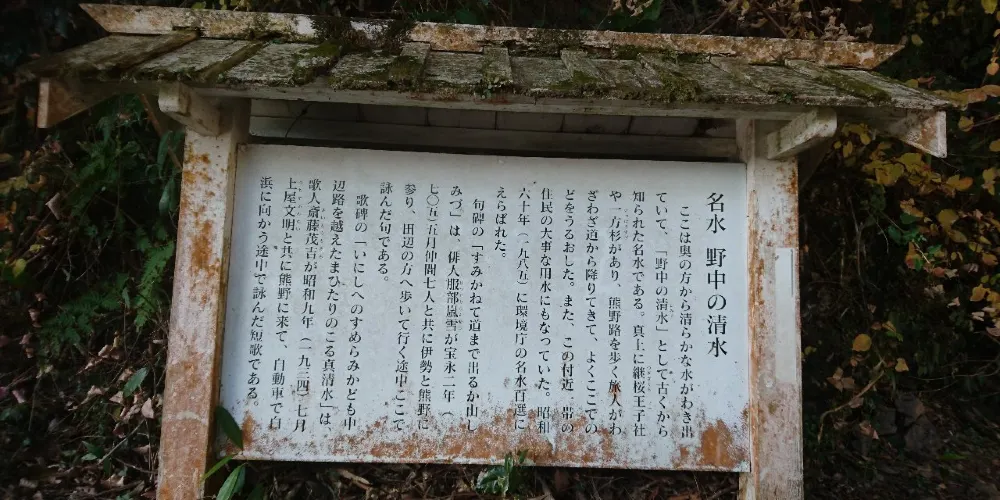 名水 野中の清水
ここは奥の方から清らかな水がわき出
ていて、「野中の清水」として古くから
知られた名水である。真上に継桜王子社
や一方杉があり、熊野路を歩く旅人がわ
ざわざ道から降りてきて、よくここでの
どをうるおした。また、この付近一帯の
住民の大事な用水にもなっていた。昭和
六十年(一九八五)に環境庁の名水百選に
えらばれた。
句碑の「すみかねて道まで出るか山し
みづ」は、俳人服部嵐雪が宝永二年(一
七〇五)五月仲間七人と共に伊勢と熊野に
参り、田辺の方へ歩いて行く途中ここで
詠んだ句である。
歌碑の「いにしへのすめらみかども中
辺路を越えたまひたりのこる真清水」は、
歌人斎藤茂吉が昭和九年(一九三四)七月
土屋文明と共に熊野に来て、自動車で白
浜に向かう途中で詠んだ短歌である。